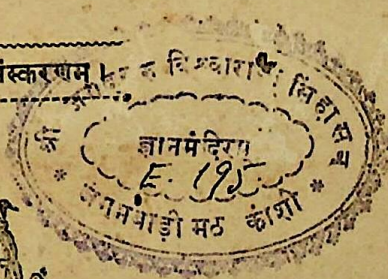 स्करणम् ।
श्री जगद्गुरु विश्वाराध्य सिंहासन
ज्ञानमंदिर
E. 195
जंगमवाड़ी मठ काशी